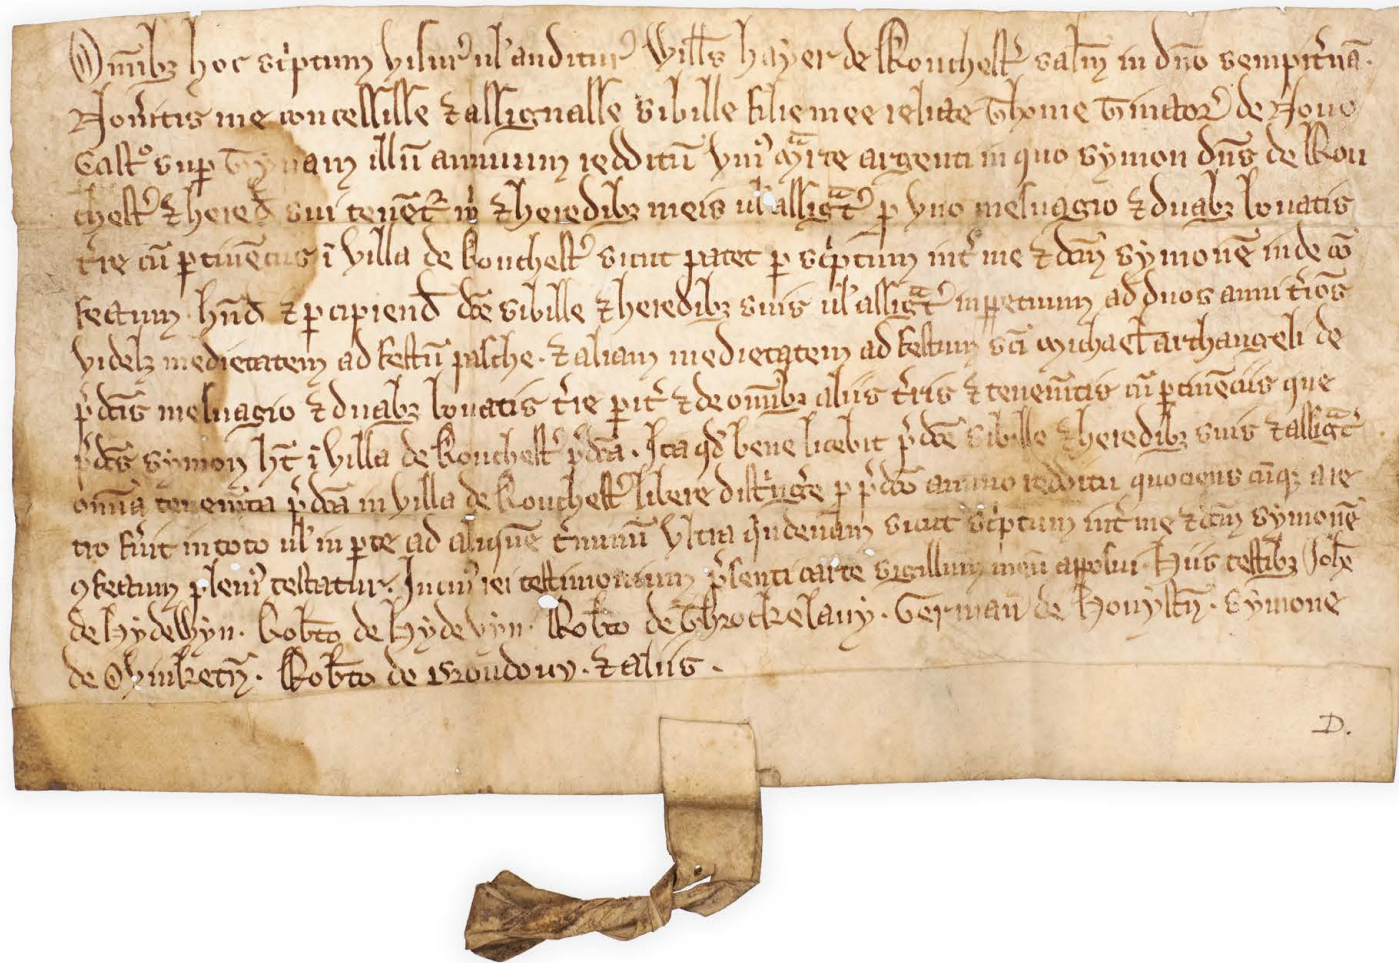 Omīb3 hoc scⁱptum visur᾽ ul᾽ auditur᾽ Witt̄s hayer de Rouchestr᾽ salt̄m in dn̄o sempit᾽nā.
Nou᾽itis me concessisse ⁊ assignasse Sibille filie mee relicte Thome Tinctor᾽ de Nouo
Castº sup Tynam illū annuum redditū vniꝰ Mᵃrce argenti in quo Symon dn̄s de Rou
chestr᾽ ⁊ hered̄ sui tenēt᷑ m̊ ⁊ heredib3 meis ul᾽ assigᵃt᾽ ꝑ vno mesuagio ⁊ duab3 bouatis
t᾽re cū ꝑtinēciis ī villa de Rouchestr᾽ sicut patet ꝑ scⁱptum int᾽ me ⁊ dc̄m Symonē inde cō
fectum. hn̄d̄ ⁊ ꝑcipiend̄ dc̄e Sibille ⁊ heredib3 suis ul᾽ assigᵃt᾽ inꝑpetuum ad duos anni t᾽mīos
videl3 medietatem ad festū pasche. ⁊ aliam medietatem ad festum sc̄i Michaelꝭ archangeli de
p᾽dc̄is mesuagio ⁊ duab3 bouatis t᾽re ꝑit᾽ ⁊ de omīb3 aliis t᾽ris ⁊ tenem̄tis cū ꝑtinēciis que
p᾽dc̄s Symon ht̄ ī villa de Rouchestr᾽ p᾽dc̄a. Ita qd̄ bene licebit p᾽dc̄e Sibille ⁊ heredib3 suis ⁊ assigᵃt᾽
omīa tenem̄ta p᾽dc̄a in villa de Rouchestr᾽ libere distⁱng᾽e ꝑ p᾽dc̄o annuo redditu quociens cūq3 a re
tro fu᾽it in toto ul᾽ in ꝑte ad aliquē t᾽minū vltra qⁱndenam sicut scⁱptum int᾽ me ⁊ dc̄m Symonē
ꝯfectum pleniꝰ testatur. In cuiꝰ rei testimonium p᾽senti carte sigillum meū apposui. Hiis testib3 Joh̄e
de Hydewyn. Rob̄to de Hydewyn. Rob̄to de Throckelauy. German᾽ de Houyst̄. Symone
de Rob̄to de ⁊ aliis.
D.